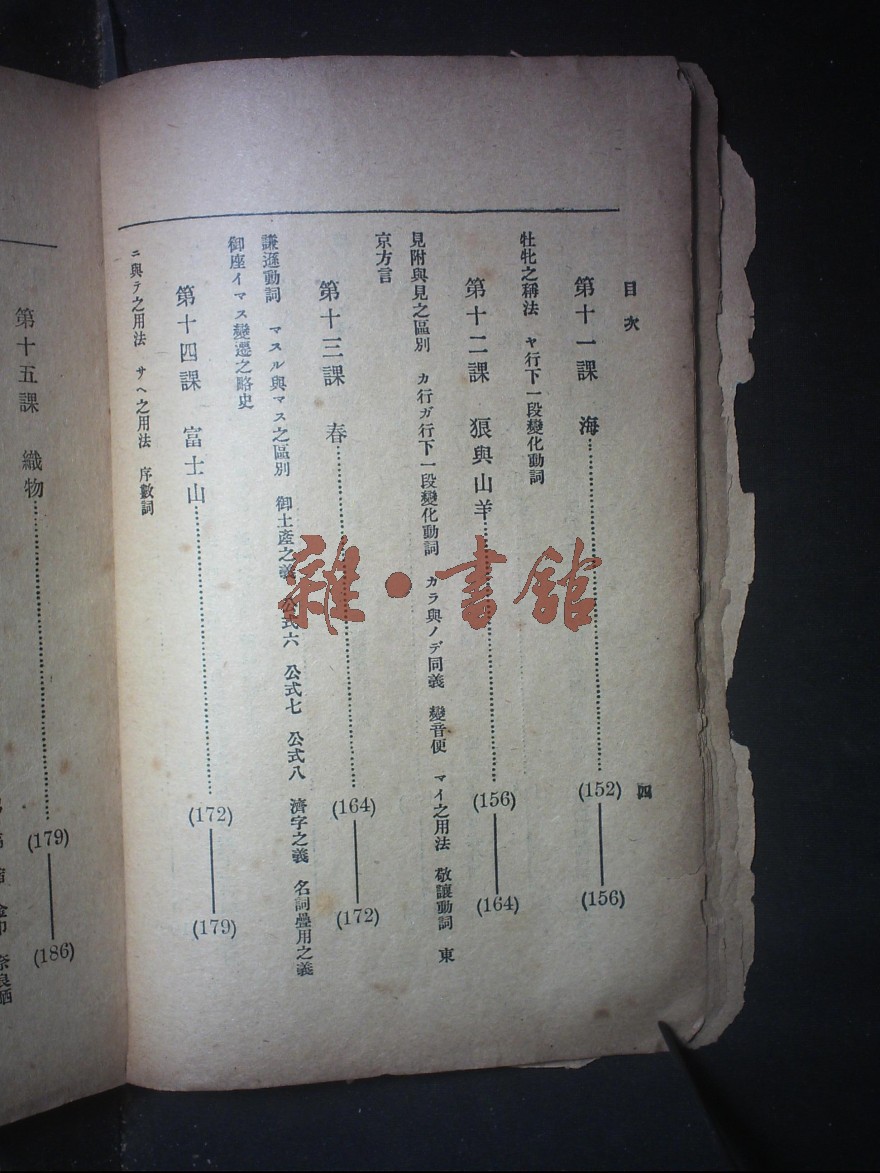 目次
四
第十一課 海……(152)——(156)
牡牝之稱法 ヤ行下一段變化動詞
第十二課 狼與山羊……(156)——(164)
見附與見之區別 カ行ガ行下一段變化動詞 カラ與ノデ同義 變音便 マイ之用法 敬讓動詞 東
京方言
第十三課 春……(164)——(172)
謙遜動詞 マスル與マス之區別 御土產之義 公式六 公式七 公式八 濟字之義 名詞疊用之義
御座イマス變遷之略史
第十四課 富士山……(172)——(179)
ニ與テ之用法 サヘ之用法 序數詞
第十五課 織物……(179)——(186)
雜·書館